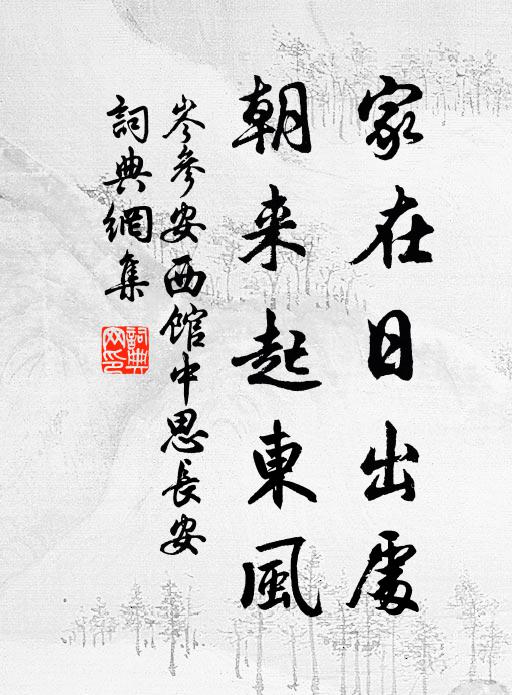 家在日出處
朝来起東風
岑參安西館中思長安
詞典網集
詞典
网印